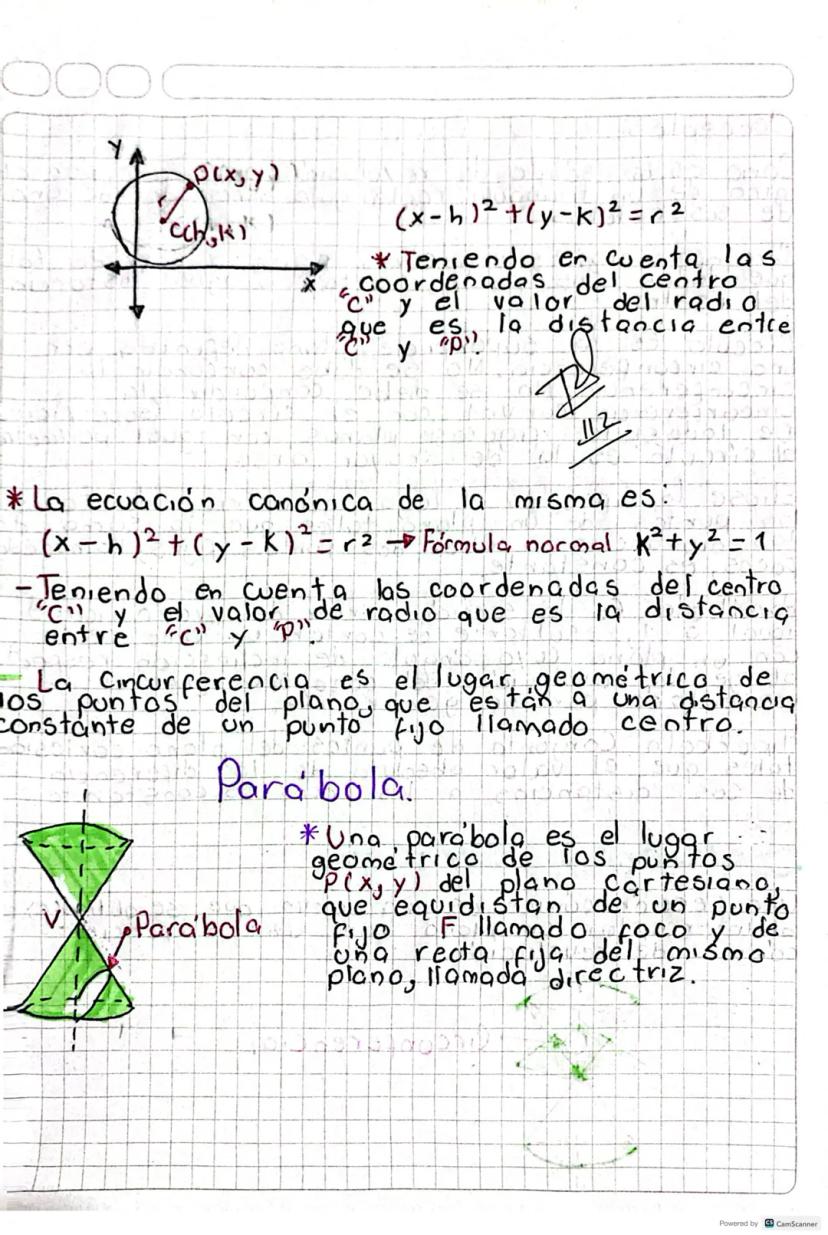 Y
P(x, y)
r
C(h, k)
X
(x-h)² + (y-k)² = r²
* Teniendo en cuenta las
coordenadas del centro
"C" y el valor del radio
que es la distancia entre
"C" y "P".
112
* La ecuación canónica de la misma es:
(x-h)² + (y-k)² = r² → Fórmula normal K² + y² = 1
- Teniendo en cuenta las coordenadas del centro
"C" y el valor de radio que es la distancia
entre "C" y "P".
- La Cincurferencia es el lugar geométrico de
los puntos del plano, que están a una distancia
constante de un punto fijo llamado centro.
Parábola.
* Una parábola es el lugar
geométrico de los puntos
P(x, y) del plano cartesiano,
que equidistan de un punto
fijo F llamado foco y de
una recta fija del mismo
plano, llamada directriz.
V
Parábola
Powered by CS CamScanner